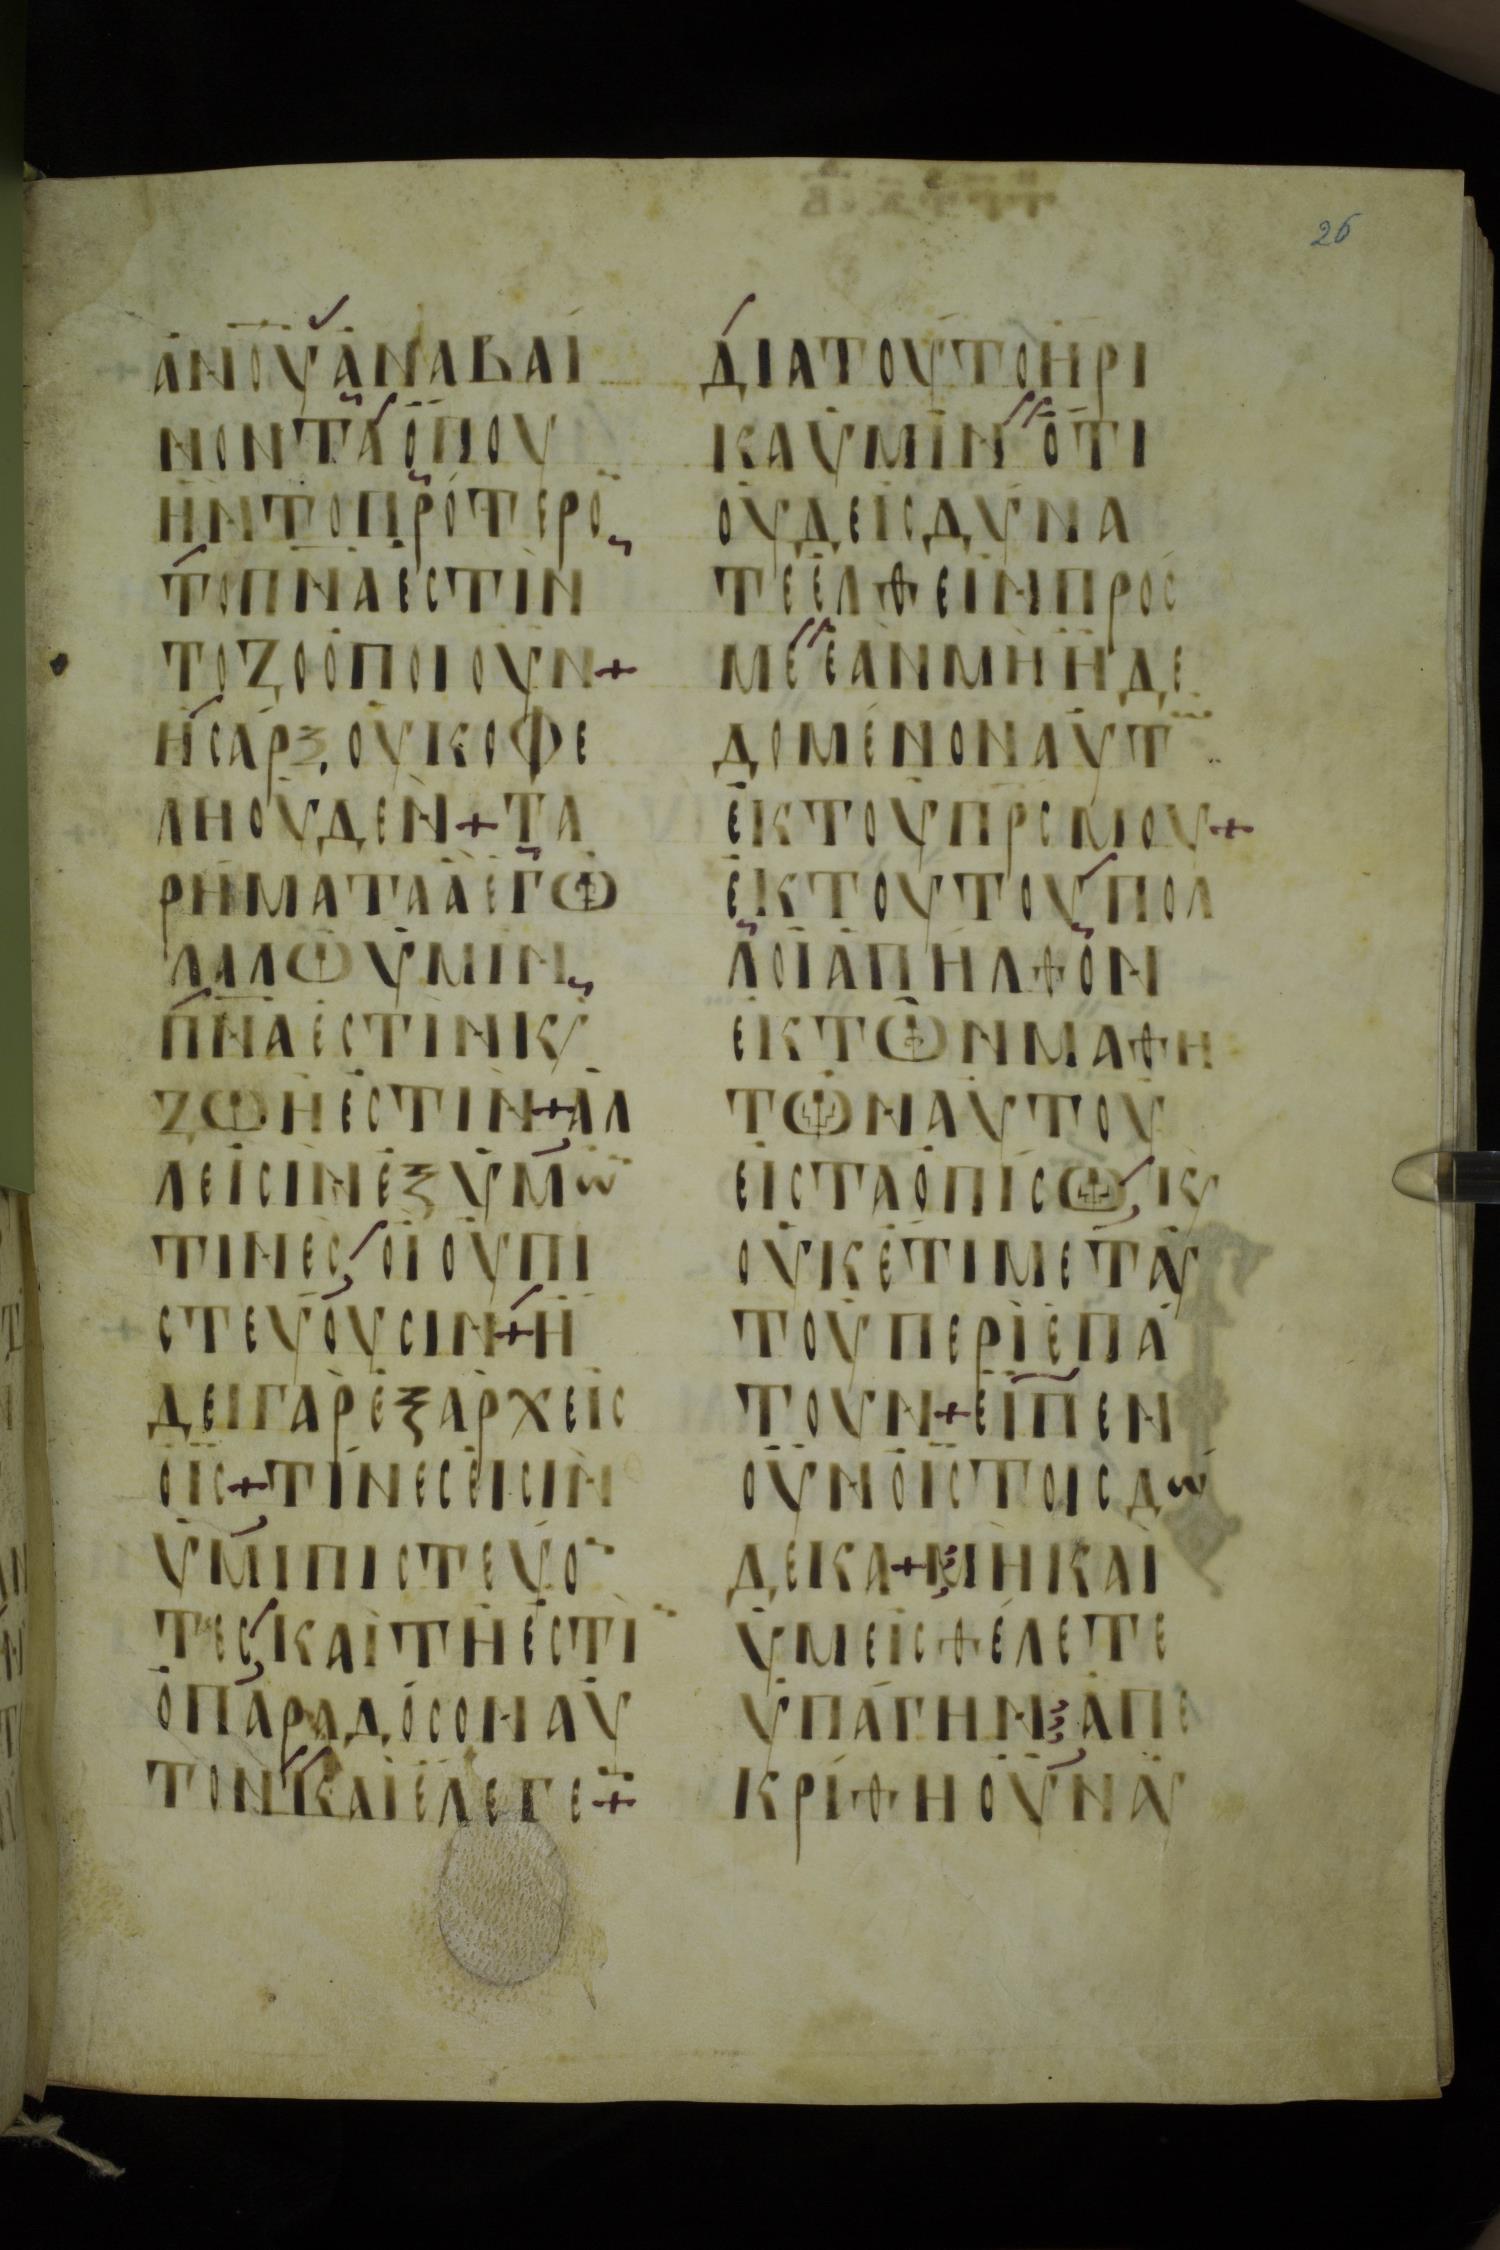 26
ΑΝΟΥΑΝΑΒΑΙ
ΝΟΝΤΑΟΠΟΥ
ΗΝΤΟΠΡΟΤΕΡΟ̅
ΤΟΠΝ̅ΑΕΣΤΙΝ
ΤΟΖΟΟΠΟΙΟΥΝ+
ΗСΑΡΞ,ΟΥΚΟΦΕ
ΛΗΟΥΔΕΝ+ΤΑ
ΡΗΜΑΤΑΑΕΓΩ
ΛΑΛΩΥΜΙΝ
ΠΝ̅ΑΕСΤΙΝΚ/
ΖΩΗΕСΤΙΝ+ΑΛ
ΛΕΙСΙΝΕΞΥΜω̅
ΤΙΝΕС,ΟΙΟΥΠΙ
СΤΕΥΟΥСΙΝ+Η
ΔΕΙΓΑΡΕΞΑΡΧΕΙС
ΟΙС+ΤΙΝΕСΕΙСΙΝ
ΥΜΙΠΙСΤΕΥΟ̅
ΤΕС,ΚΑΙΤΗΕСΤΙ̅
ΟΠΑΡΑΔΟСΟΝΑΥ
ΤΟΝΚΑΙΕΛΕΓΕ̅+
ΔΙΑΤΟΥΤΟΗΡΙ
ΚΑΥΜΙΝΟΤΙ
ΟΥΔΕΙСΔΥΝΑ
ΤΕΕΛΘΕΙΝΠΡΟС
ΜΕΕΑΝΜΗΗΔΕ
ΔΟΜΕΝΟΝΑΥΤ
ΕΚΤΟΥΠΡСΜΟΥ+
ΕΚΤΟΥΤΟΥΠΟΛ
ΛΟΙΑΠΗΛΘΟΝ
ΕΚΤΩΝΜΑΘΗ
ΤΩΝΑΥΤΟΥ
ΕΙСΤΑΟΠΙСΩ,Κ/
ΟΥΚΕΤΙΜΕΤΑΥ
ΤΟΥΠΕΡΙΕΠΑ
ΤΟΥΝ+ΕΙΠΕΝ
ΟΥΝΟΙСΤΟΙСΔω
ΔΕΚΑ+ΜΗΚΑΙ
ΥΜΕΙСΘΕΛΕΤΕ
ΥΠΑΓΗΝ ΑΠΕ
ΚΡΙΘΗΟΥΝΑΥ